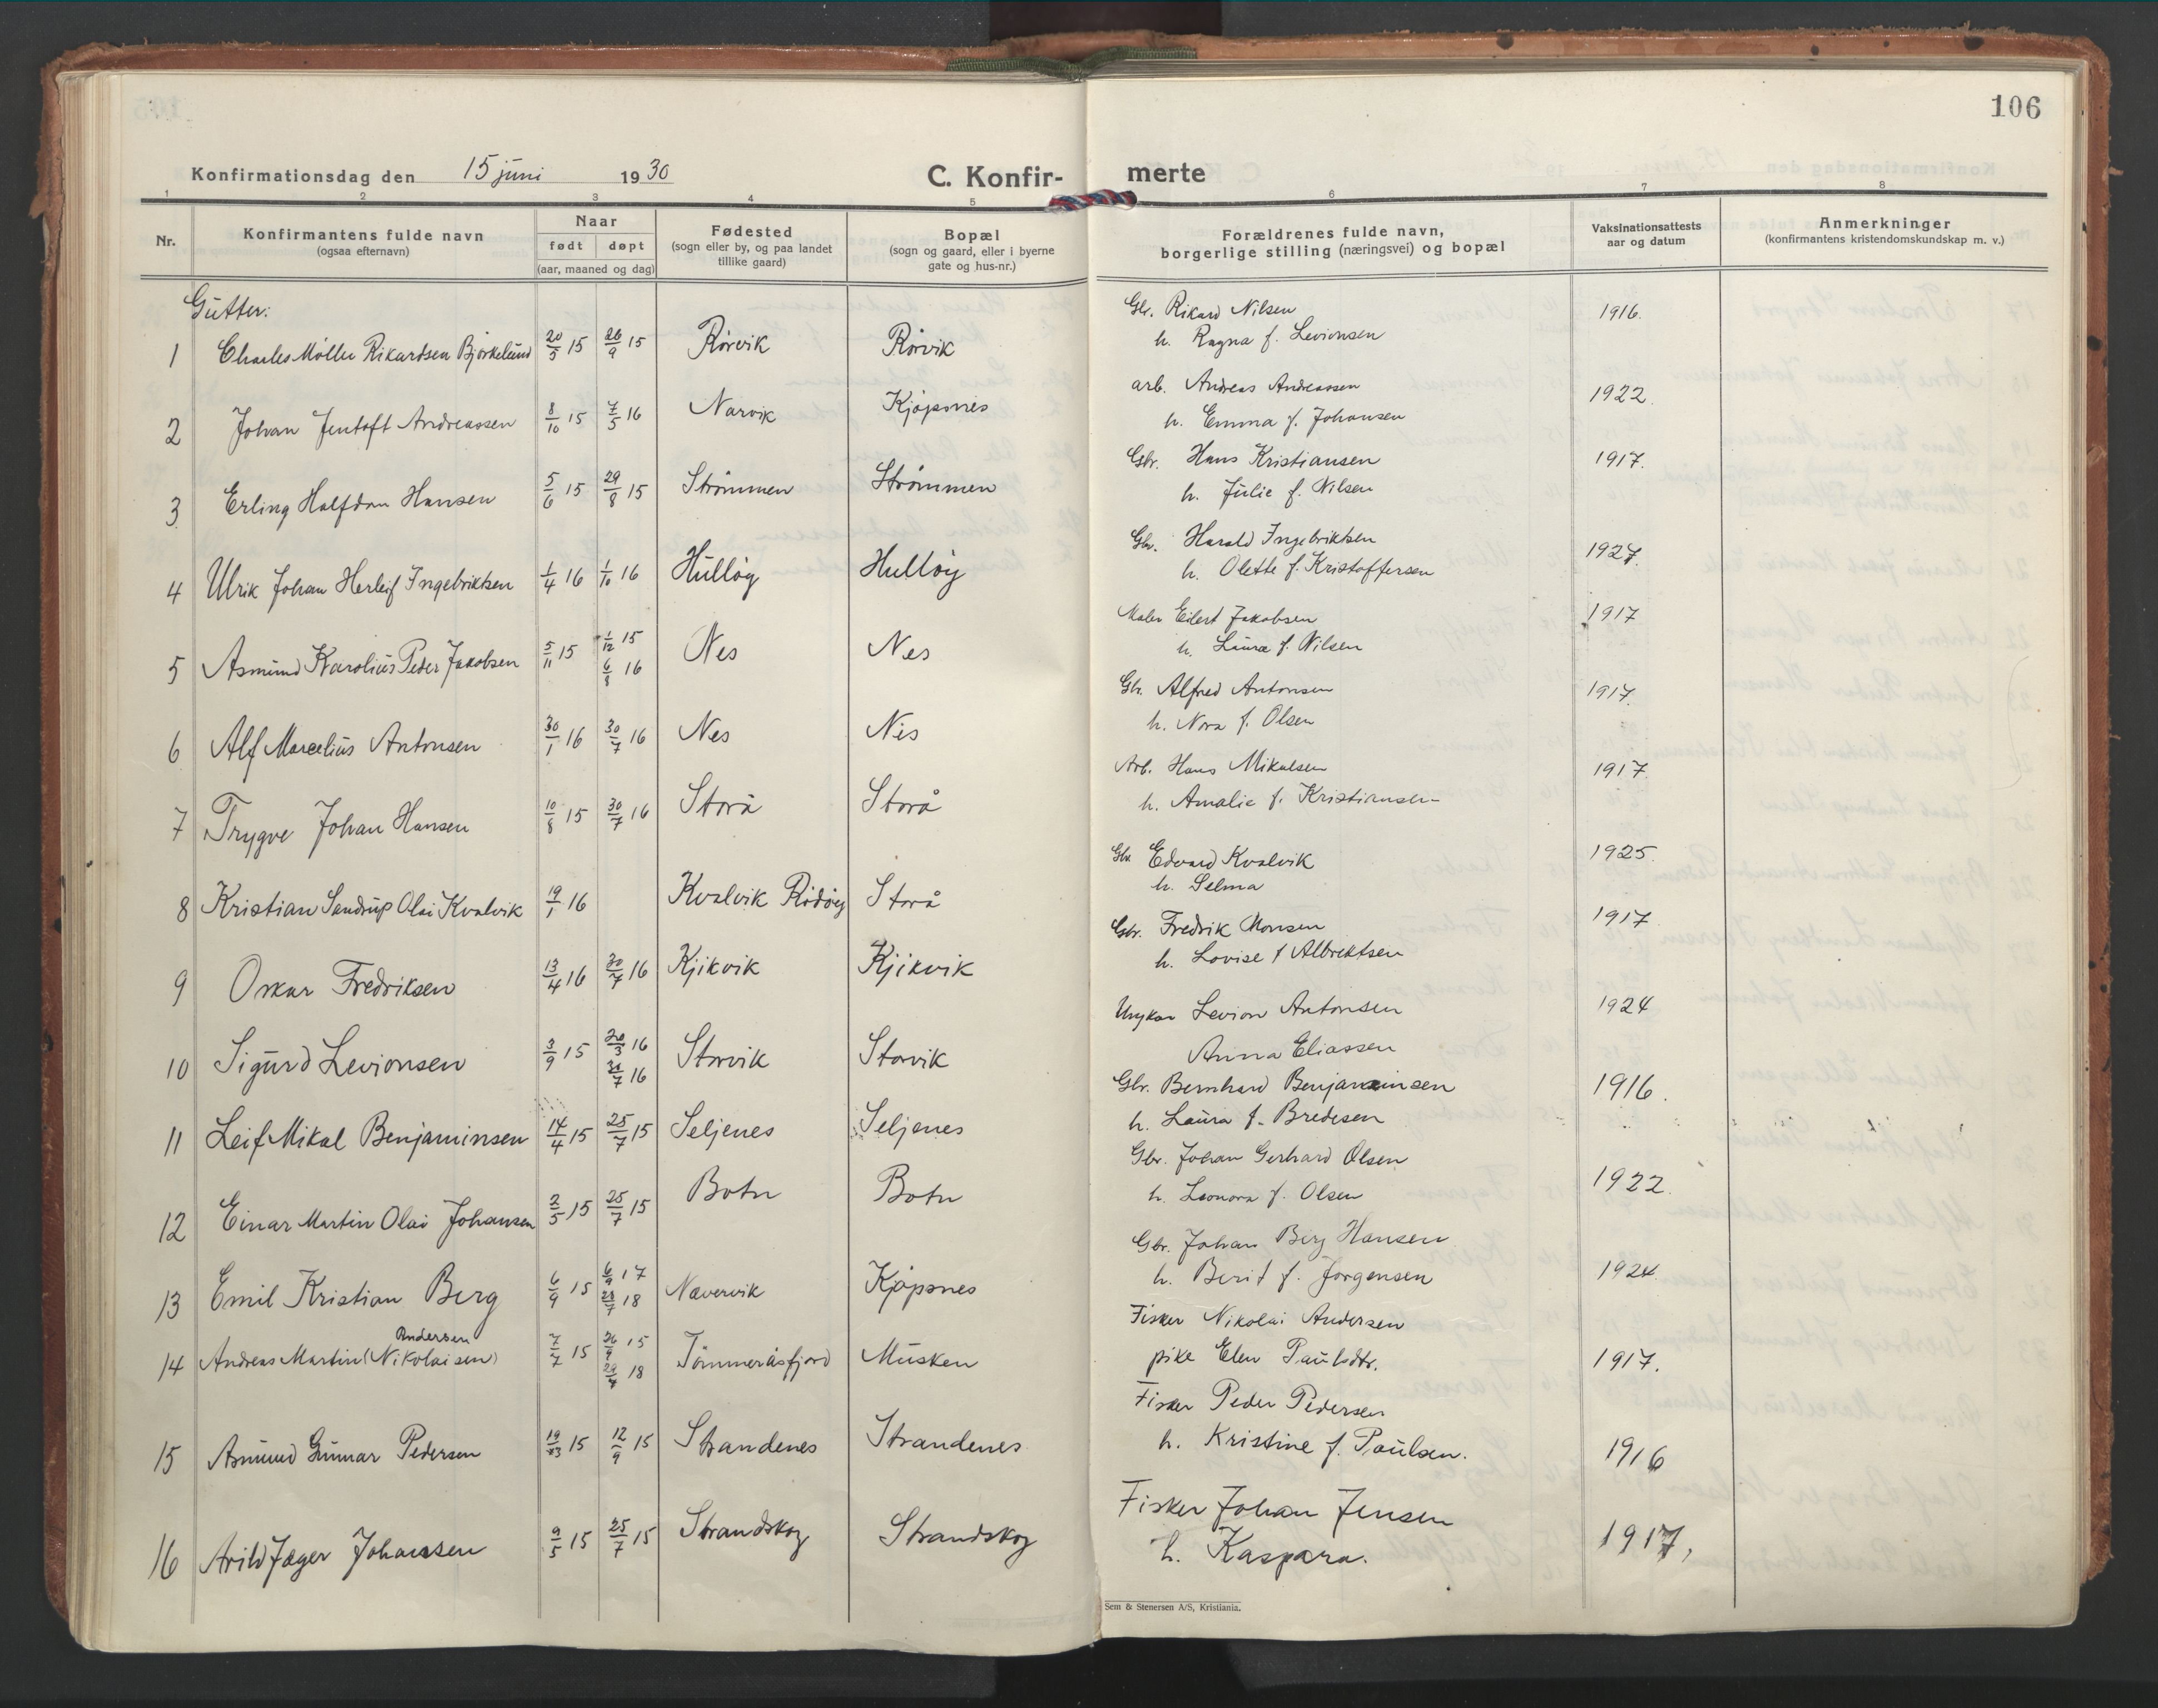 106
Konfirmationsdag den 15 juni 1930
C. Konfir- merte
1 2 3 4 5 6 7 8
Nr.
Konfirmantens fulde navn
(ogsaa efternavn)
Naar
født døpt
(aar, maaned og dag)
Fødested
(sogn eller by, og paa landet
tillike gaard)
Bopæl
(sogn og gaard, eller i byerne
gate og hus-nr.)
Forældrenes fulde navn,
borgerlige stilling (næringsvei) og bopæl
Vaksinationsattests
aar og datum
Anmerkninger
(konfirmantens kristendomskundskap m. v.)
Gutter:
1 Charles Møller Rikardsen Bjørkelund 20/5 15 26/9 15 Rørvik Rørvik
Gbr. Rikard Nilsen 1916.
h. Ragna f. Levionsen
2 Johan Jentoft Andreassen 8/10 15 7/5 16 Narvik Kjøpsnes
arb. Andreas Andreassen 1922.
h. Emma f. Johansen
3 Erling Halfdan Hansen 5/6 15 29/8 15 Strømmen Strømmen
Gbr. Hans Kristiansen 1917.
h. Julie f. Nilsen
4 Ulrik Johan Herleif Ingebriktsen 1/4 16 1/10 16 Hulløy Hulløy
Gbr. Harald Ingebriktsen 1927.
h. Olette f. Kristoffersen
5 Asmund Karolius Peder Jakobsen 5/11 15 1/12 15 Nes Nes
6/8 16
Maler Eilert Jakobsen 1917
h. Laura f. Nilsen
6 Alf Marcelius Antonsen 30/1 16 30/7 16 Nes Nes
Gbr. Alfred Antonsen 1917.
h. Nora f. Olsen
7 Trygve Johan Hansen 10/8 15 30/7 16 Storå Storå
Arb. Hans Mikalsen 1917.
h. Amalie f. Kristiansen
8 Kristian Sandrup Olai Kvalvik 19/1 16 Kvalvik Rødøy Storå
Gbr. Edvard Kvalvik 1925.
h. Selma
9 Oskar Fredriksen 13/4 16 30/7 16 Kjikvik Kjikvik
Gbr. Fredrik Monsen 1917
h. Lovise f Albrektsen
10 Sigurd Levionsen 3/9 15 20/3 16 Storvik Storvik
30/7 16
Ungkar Levion Antonsen 1924
Anna Eliassen
11 Leif Mikal Benjaminsen 14/4 15 25/7 15 Seljenes Seljenes
Gbr. Bernhard Benjaminsen 1916.
h. Laura f. Bredesen
12 Einar Martin Olai Johansen 2/5 15 25/7 15 Botn Botn
Gbr. Johan Gerhard Olsen 1922.
h. Leonora f. Olsen
13 Emil Kristian Berg 6/9 15 6/9 17 Nævervik Kjøpsnes
28/7 18
Gbr. Johan Berg Hansen 1924.
h. Berit f. Jørgensen
Andersen
14 Andreas Martin (Nikolaisen) 7/7 15 26/9 15 Tømmeråsfjord Musken
18
Fisker Nikolai Andersen 1917.
pike Elen Paulsdtr.
15 Asmund Gunnar Pedersen 19/ 15 12/9 15 Strandenes Strandenes
Fisker Peder Pedersen 1916
h. Kristine f. Paulsen.
16 Arild Jæger Johansen 9/5 15 25/7 15 Strandskog Strandskog
Fisker Johan Jensen 1917,
h. Kaspara.
Sem & Stenersen A/S, Kristiania.